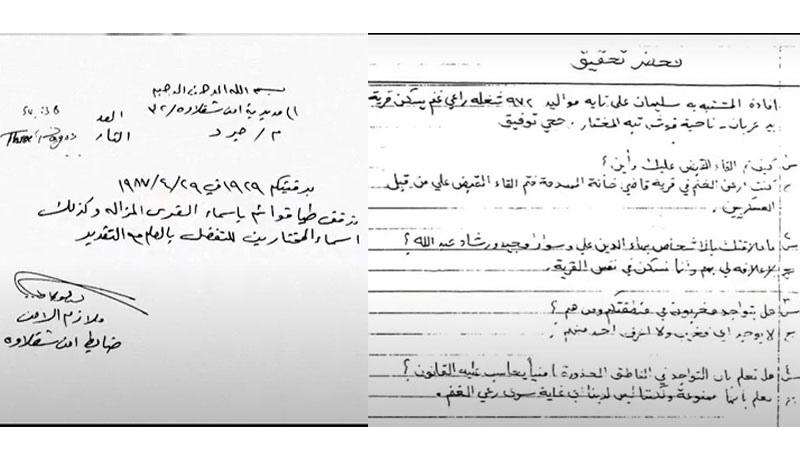 بسم الله الرحمن الرحيم
الى مديرية امن شقلاوه/٣٢
م/ جرد
العد
التار
Three Pages
برقيتكم ١٩٢٩ في ٢٩/٤/١٩٨٧
نرفق طيا قوائم باسماء القرى المزاله وكذلك
اسماء المختارين للتفضل بالعلم مع التقدير
ملازم الامن
ضابط امن شقلاوه
محضر تحقيق
افادة المشتبه به سليمان علي تايه مواليد ٩٧٢ شغله راعي غنم يسكن قرية
بير عربان - ناحية قوش تبه المختار. حجي توفيق
س كيف تم القاء القبض عليك وأين؟
ج كنت ارعى الغنم في قرية قاضي خانة المهدومة فتم القاء القبض علي من قبل
العسكريين.
س٢ ما علاقتك بالاشخاص بهاء الدين علي وسوار مجيد ورشاد عبد الله؟
ج لا علاقه لي بهم وانا نسكن في نفس القرية.
س٣ هل يتواجد مخربون في منطقتكم ومن هم؟
ج لا يوجد اي مخرب ولا اعرف احد منهم
س٤ هل تعلم بان التواجد في المناطق المحذورة امنياً يحاسب عليه القانون؟
ج نعلم بانها ممنوعة ولكننا ليس لدينا اي غاية سوى رعي الغنم.